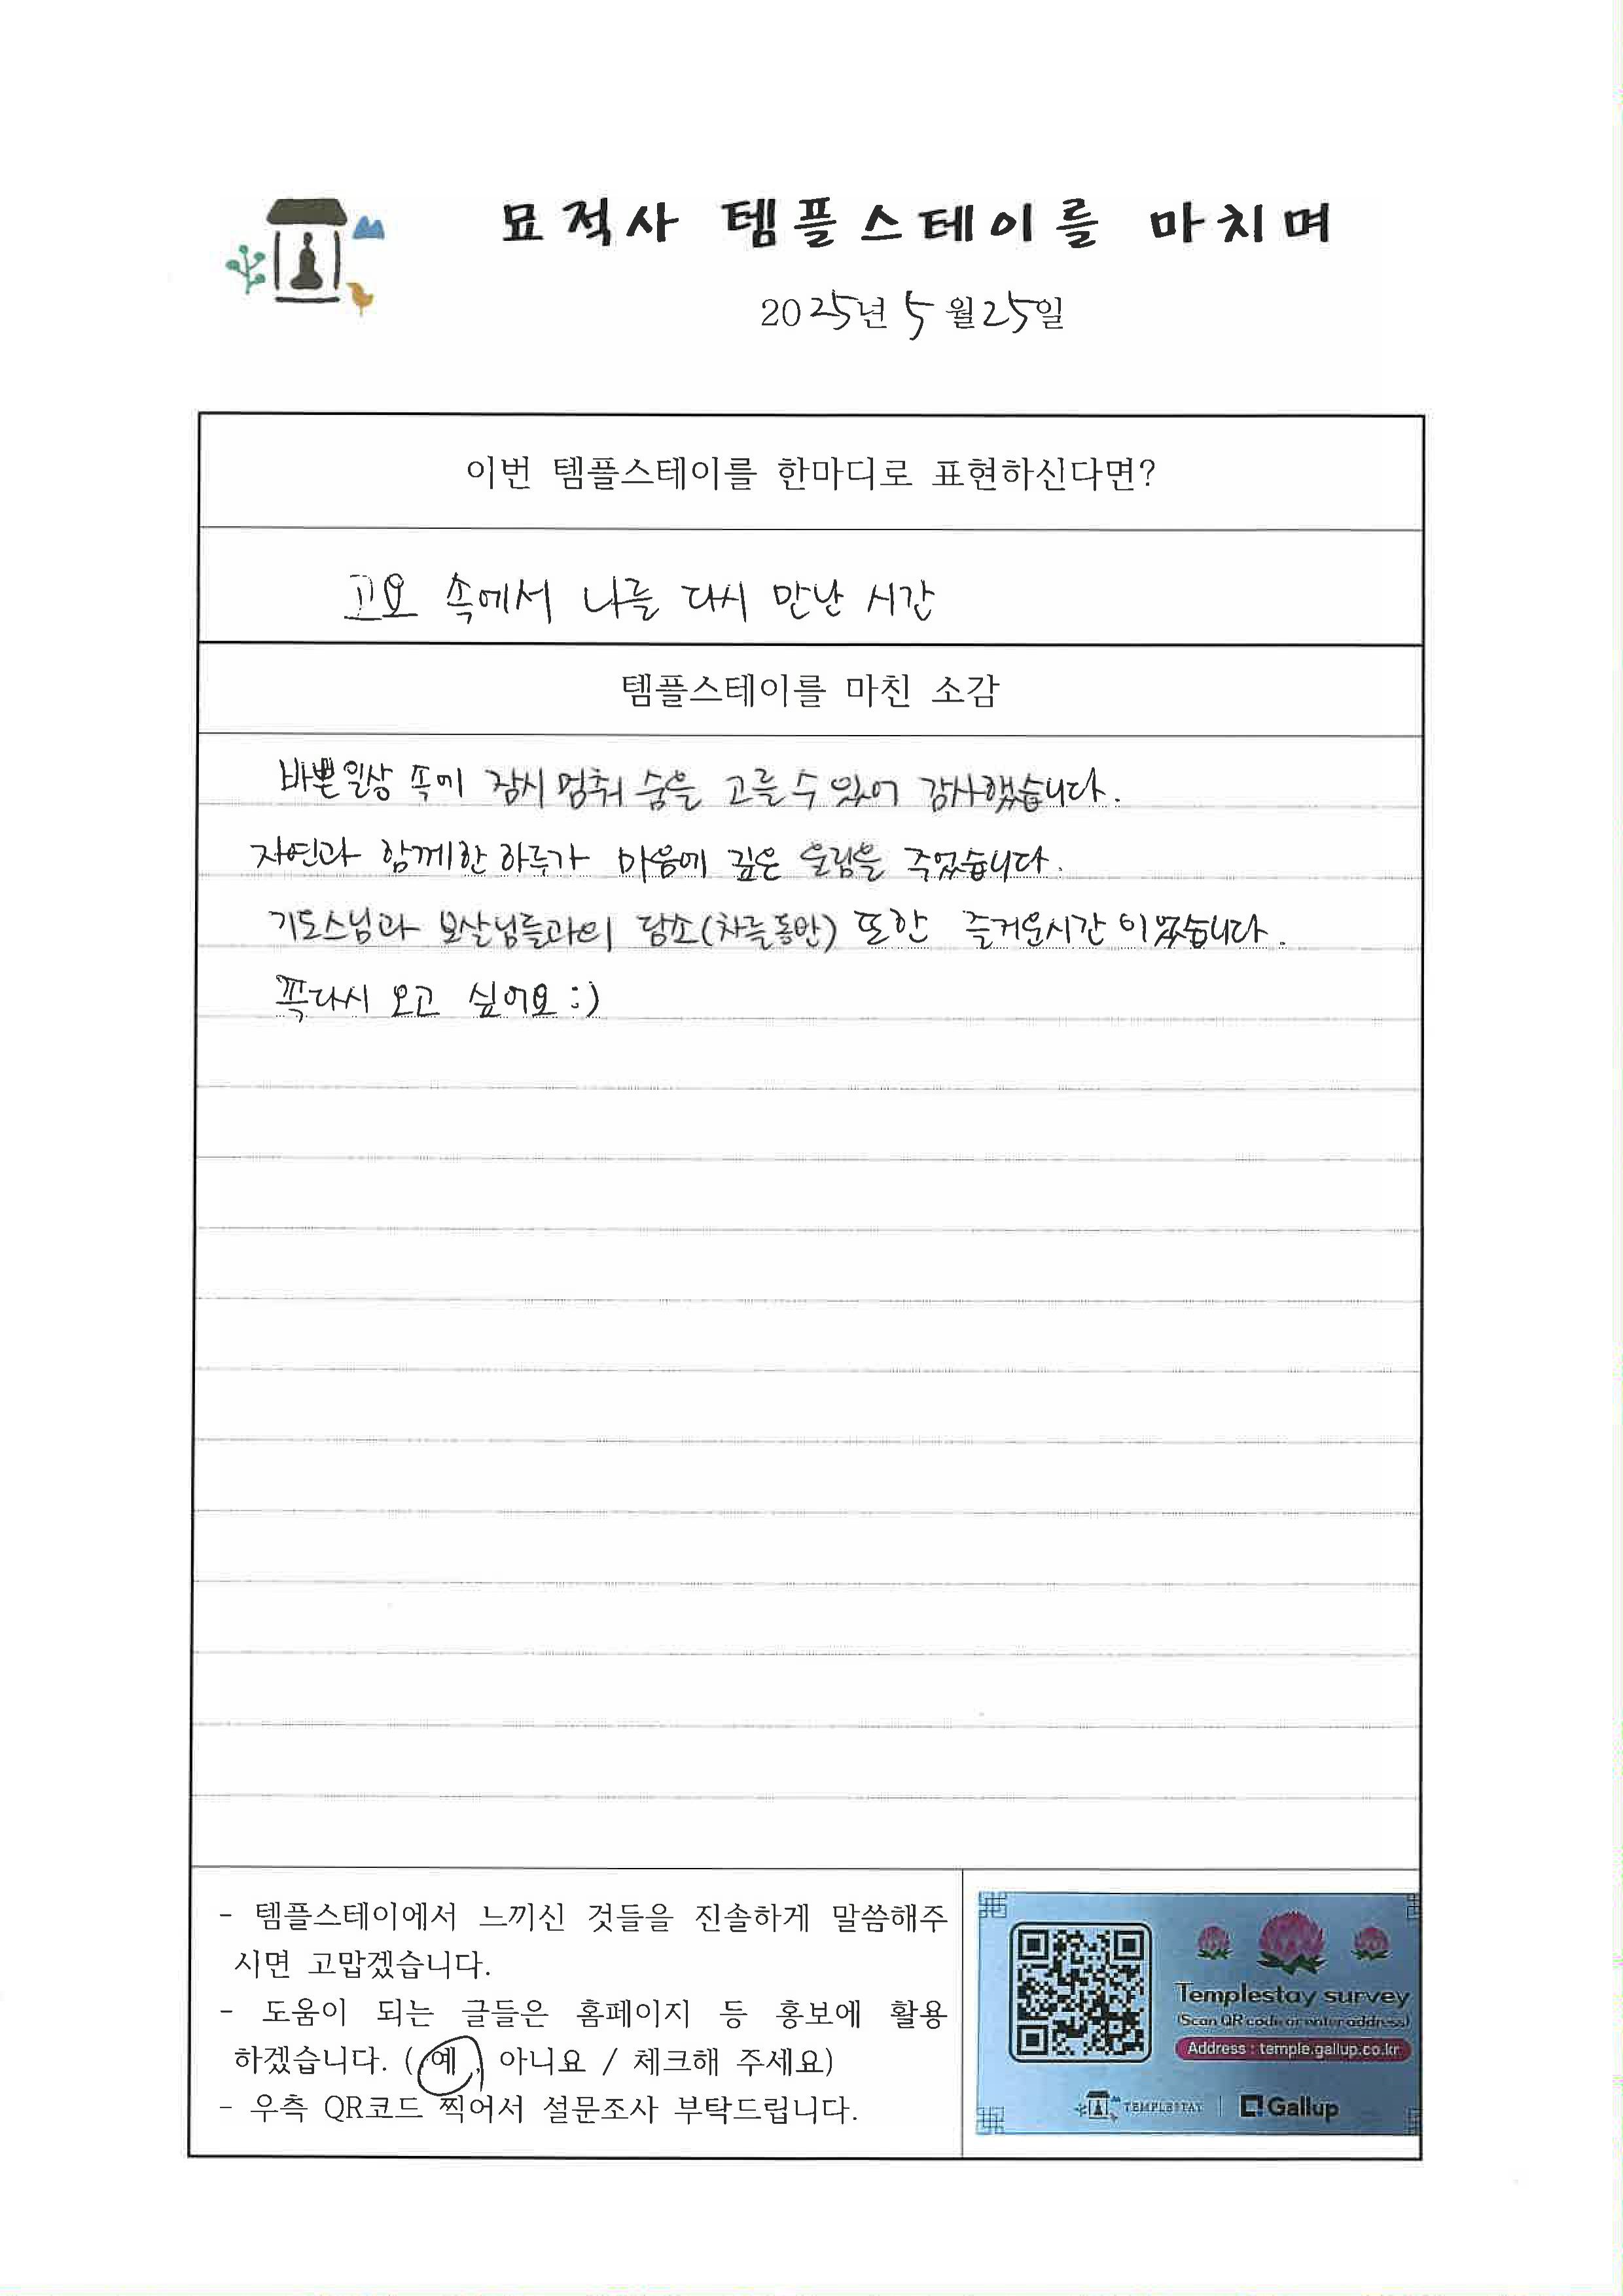 묘적사 템플스테이를 마치며
2025년 5월 25일
이번 템플스테이를 한마디로 표현하신다면?
고요 속에서 나를 다시 만난 시간
템플스테이를 마친 소감
바쁜일상 속에 잠시 멈춰 숨을 고를 수 있어 감사했습니다.
자연과 함께한 하루가 마음에 깊은 울림을 주었습니다.
기도스님과 보살님들과의 담소(차를동반) 또한 즐거운시간 이었습니다.
꼭다시 오고 싶어요 :)
- 템플스테이에서 느끼신 것들을 진솔하게 말씀해주
시면 고맙겠습니다.
- 도움이 되는 글들은 홈페이지 등 홍보에 활용
하겠습니다. ( 예 ) 아니요 / 체크해 주세요)
- 우측 QR코드 찍어서 설문조사 부탁드립니다.
Templestay survey
(Scan QR code or enter address)
Address : temple.gallup.co.kr
TEMPLESTAY | Gallup